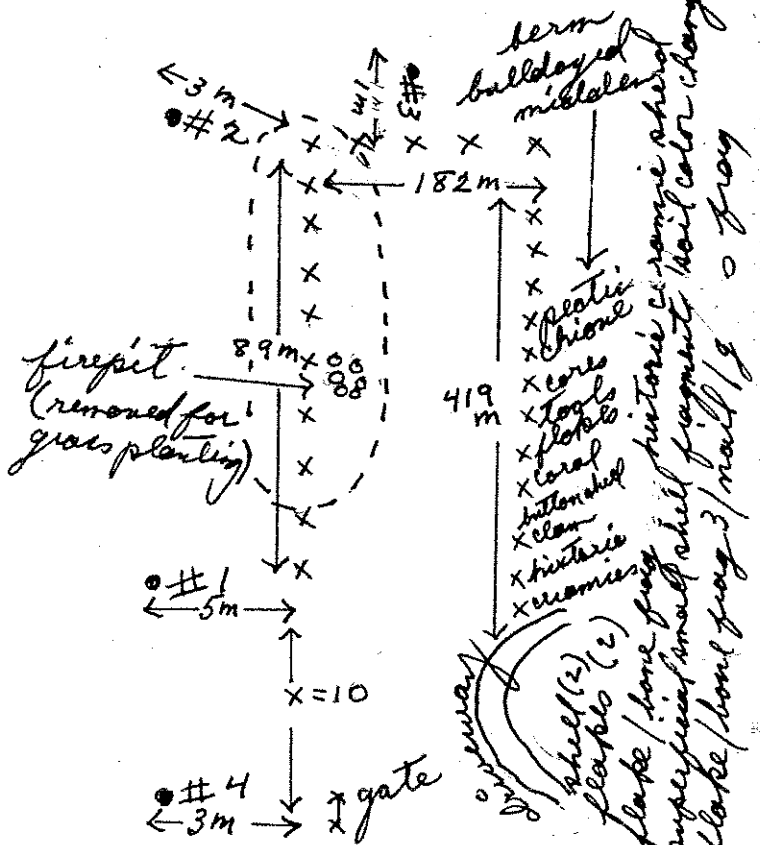 berm
bulldozed
midden
3 m
#2
#3
182 m
89 m
firepit.
(removed for
grass planting)
419
m
pecti
chione
cores
tools
flakes
coral
button shell
clam
historic
ceramics
#1
5m
x = 10
#4
3m
gate
driveway
shell (2)
flakes (2)
flake / bone frag historic ceramic sherd
superficial small shell fragment / soil color chang
flake / bone frag 3 / nail / g frag